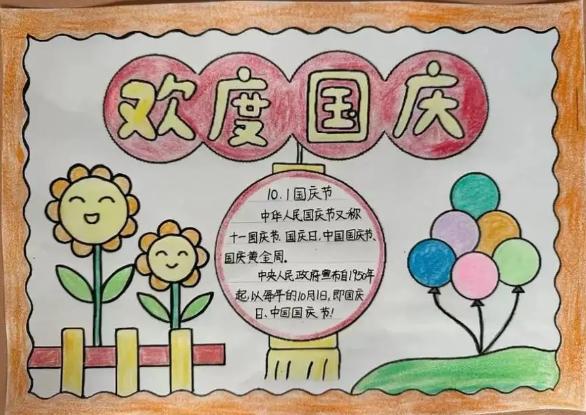 欢度国庆
10.1国庆节
中华人民国庆节又称
十一国庆节、国庆日、中国国庆节、
国庆黄金周。
中央人民政府宣布自1950年
起,以每年的10月1日,即国庆
日、中国国庆节!